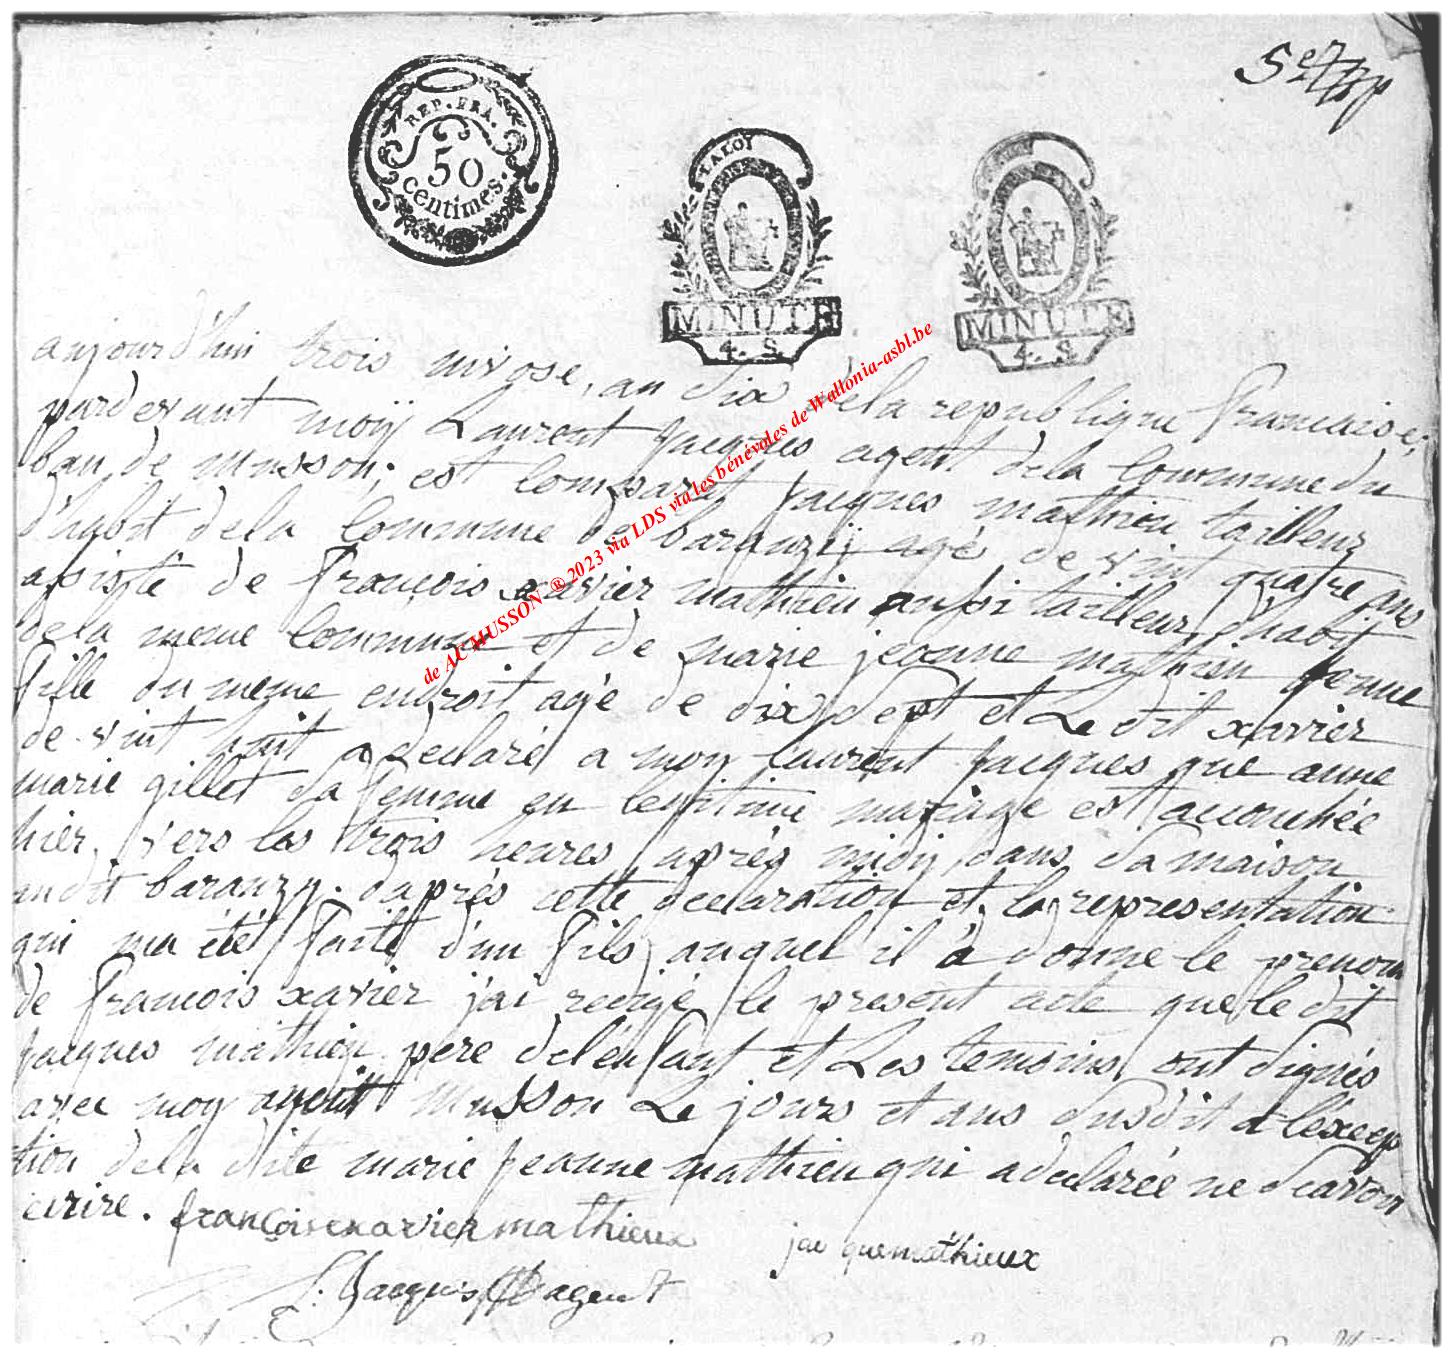 REP. FRA.
50
centimes.
LA LOI
MINUTE
4. S.
MINUTE
4. S.
aujourd'hui trois nivose, an dix dela republique francaise,
pardevant moÿ Laurent jacques agent dela Commune du
ban de musson; est Comparut jacques mathieu tailleur
d'habit dela Commune de baranzÿ agé de vint quatre ans
assisté de françois xavier mathieu aussi tailleur d'habit
dela meme Commune et de marie jeanne mathieu jeune
fille du meme endroit agé de dix sept et Le dit xavier
de vint huit a declaré a moy laurent jacques que anne
marie gillet sa femme en legitime mariage est accouchée
hier, vers les trois heures après midy dans sa maison
audit baranzy. d'après cette declaration et la representation
qui ma été faite d'un fils auquel il à donne le prenom
de francois xavier j'ai redigé le present acte que le dit
jacques mathieu pere del'enfant et Les temoins ont signés
avec moy agent Musson Le jours et ans susdit a l'excep
tion dela dite marie jeanne mathieu qui a declarée ne scavoir
ecrire. françoisexavier mathieux
jacque mathieux
L. Jacques agent
de ACMUSSON ® 2023 via LDS via les bénévoles de Wallonia-asbl.be